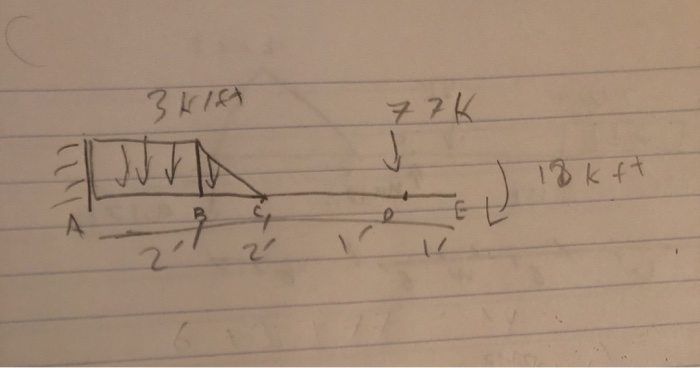 3 k/ft 77K
18 k ft
A B C D E
2' 2' 1' 1'